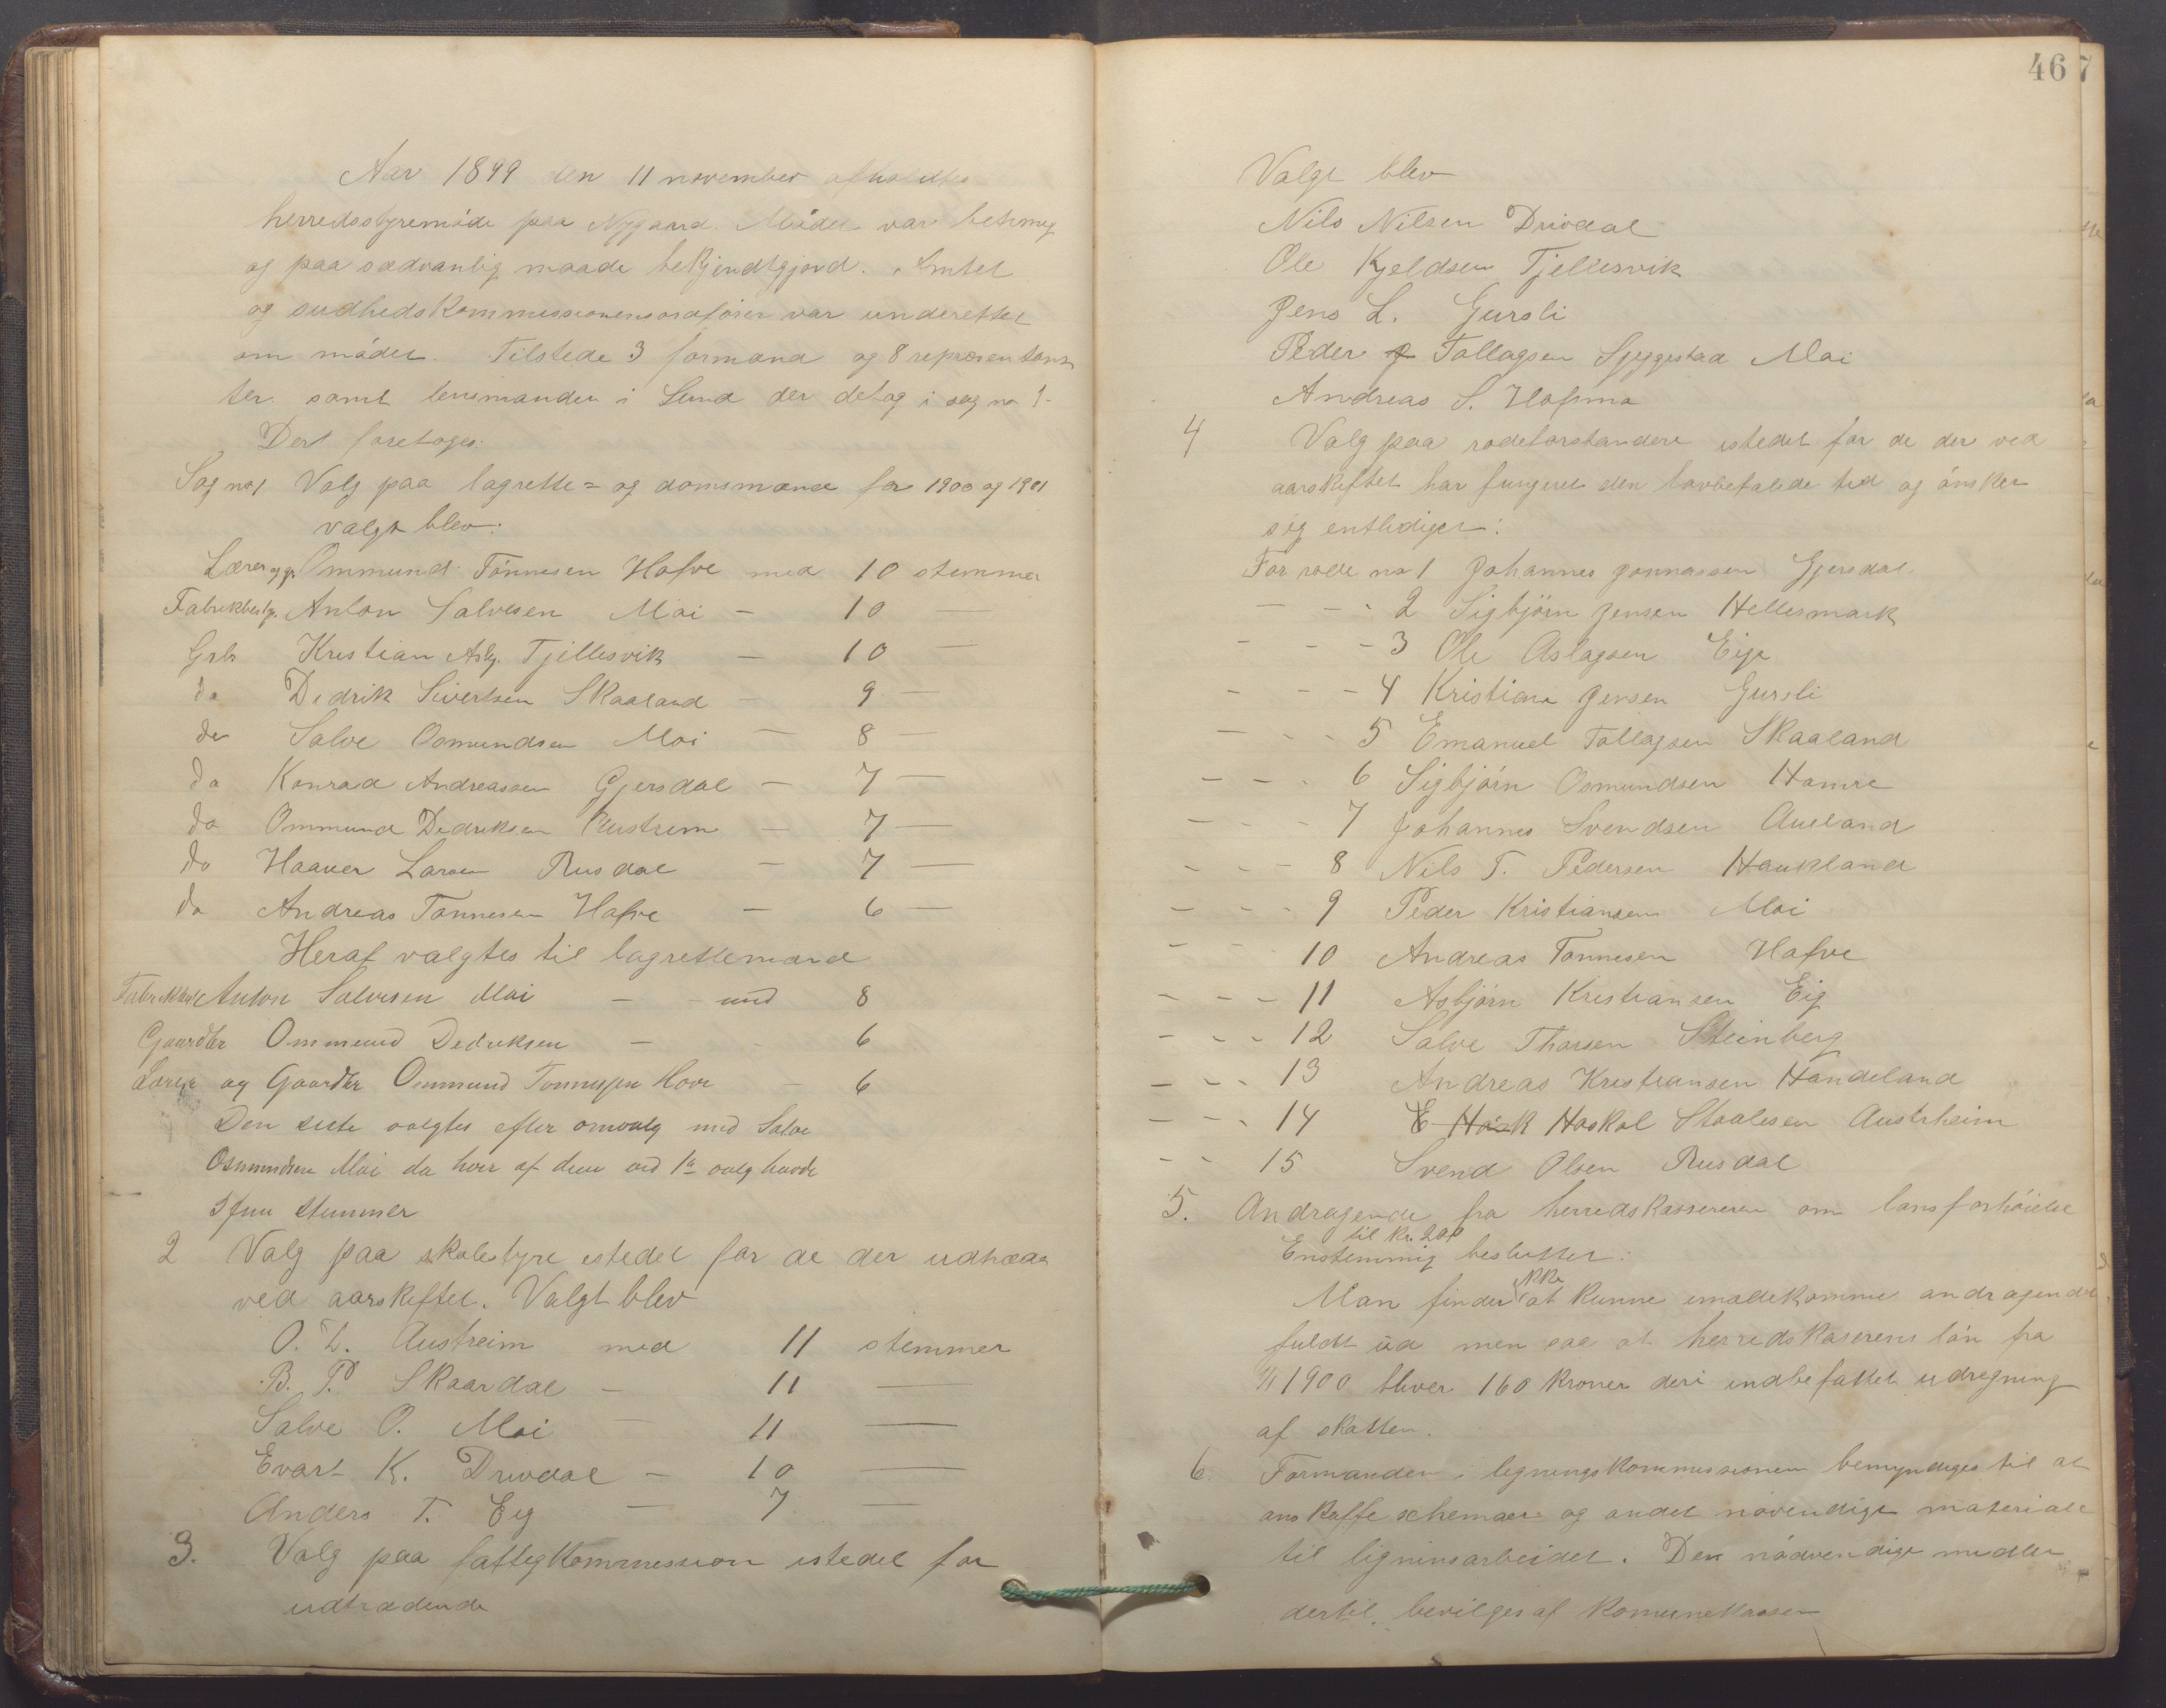 Aar 1899 den 11 november afholdtes
herredsstyremöde paa Nygaard. Mödet var betimeg
og paa sædvanlig maade bekjendtgjord. Amtet
og sudhedskommissionens ordförer var underettet
om mödet. Tilstede 3 formænd og 8 repræsentant
ter samt lensmanden i Lund der deltog i sag no 1.
Dert foretoges:
Sag no 1 Valg paa lagrette= og domsmænd for 1900 og 1901
valgt blev:
Lærer og gr. Ommund Tönnesen Hofve med 10 stemmer
Fabrikbestyr. Anton Salvesen Moi — 10 —
Grbr Kristian Aslg. Tjellesvik — 10 —
do Didrik Sivertsen Skaaland — 9 —
do Salve Osmundsen Moi — 8 —
do Konrad Andreassen Gjersdal — 7 —
do Ommund Dedriksen Austrem — 7 —
do Haaver Larsen Rusdal — 7 —
do Andreas Tönnesen Hofve — 6 —
Heraf valgtes til lagrettemænd
Anton Salvesen Moi — med 8
Gaardbr Ommund Dedriksen — - 6
Lærer og Gaardbr Ommund Tonnesen Hove — 6
Den siste valgtes efter omvalg med Salve
Osmundsen Moi da hver af dem ved 1ste valg havde
5 fem stemmer
2 Valg paa skolestyre istedet for de der udtræder
ved aarskiftet. Valgt blev
O. L. Austreim med 11 stemmer
B. P. Skaardal — 11 —
Salve O. Moi — 11 —
Evart K. Drivdal — 10 —
Anders T. Eig — 7 —
3. Valg paa fattigkommission istedet for
udtrædende
46 7
Valgt blev
Nils Nilsen Drivdal
Ole Kjeldsen Tjellesvik
Jens L. Gursli
Peder Tollagsen Skjeggestad Moi
Andreas S. Hofsmo
4 Valg paa rodeforstandere istedet for de der ved
aarskiftet har fungeret den lovbefalede tid og önsker
sig entlediget:
For rode no 1 Johannes Jonnassen Gjersdal
— - - 2 Sigbjörn Jensen Hellesmark
- - - 3 Ole Aslagsen Eige
- - - 4 Kristian Jensen Gursli
— - - 5 Emanuel Tollagsen Skaaland
- — - 6 Sigbjörn Osmundsen Hamre
- - - 7 Johannes Svendsen Aueland
- - - 8 Nils T. Pedersen Haukland
- - - 9 Peder Kristiansen Moi
- - 10 Andreas Tönnesen Hofve
- - - 11 Asbjörn Kristiansen Eig
- - - 12 Salve Thorsen Steinberg
— - - 13 Andreas Kristiansen Handeland
— - - 14 Haskol Staalesen Austrheim
- - 15 Svend Olsen Rusdal
5. Andragende fra herredskassereren om lönsforhöielse
til kr. 200
Enstemmig besluttet:
Man finder ikke at kunne imödekomme andragendet
fuldt ud men saa at herredskaserens lön fra
1/1 1900 bliver 160 kroner deri indbefattet udregning
af skatten.
6. Formanden i ligningskommissionen bemyndiges til at
anskaffe schemaer og andet növendige materiale
til ligninsarbeidet. Den nödvendige midler
dertil bevilges af Komunekassen